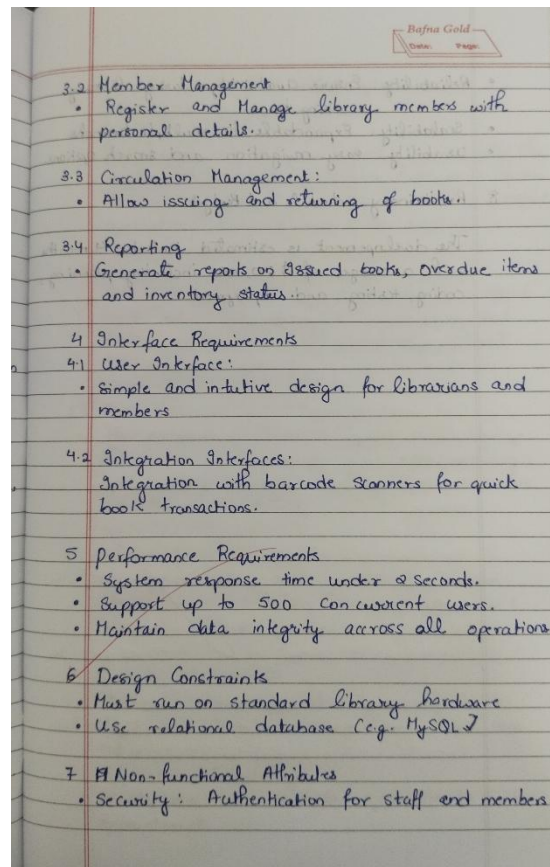 Bafna Gold
Date: Page:
3.2 Member Management
• Register and Manage library members with
personal details.
3.3 Circulation Management:
• Allow issuing and returning of books.
3.4. Reporting
• Generate reports on Issued books, overdue items
and inventory status.
4 Interface Requirements
4.1 User Interface:
• Simple and intutive design for librarians and
members
4.2 Integration Interfaces:
Integration with barcode scanners for quick
book transactions.
5 Performance Requirements
• System response time under 2 seconds.
• Support up to 500 concurrent users.
• Maintain data integrity accross all operations
6 Design Constraints
• Must run on standard library hardware
• Use relational database (e.g. MySQL)
7 Non-functional Attributes
• Security: Authentication for staff and members